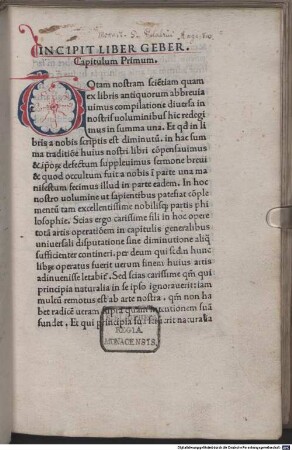 INCIPIT LIBER GEBER.
Capitulum Primum.
Otam nostram sciẽtiam quam
ex libris antiquorum abbreuia
uimus compilatione diuersa in
nostris uoluminibus hic redegi
mus in summa una. Et qđ in li
bris a nobis scriptis est diminutũ. in hac sum
ma traditiõe huius nostri libri cõpensauimus
& ipõꝝ defectum suppleuimus sermone breui
& quod occultum fuit a nobis ĩ parte una ma
nifestum fecimus illud in parte eadem. In hoc
nostro uolumine ut sapientibus pateſiat cõple
mentũ tam excellentissime nobilisꝗ partis phi
losophie. Scias ergo carissime fili in hoc opere
totã artis operatiõem in capitulis generalibus
uniuersali disputatione sine diminutione aliq̃
sufficienter contineri. per deum qui sc̃dm hunc
librum operatus fuerit uerum finem huius artis
adinuenisse letabit᷑. Sed scias carissime qm̃ qui
principia naturalia in se ipso ignorauerit: iam
multũ remotus est ab arte nostra. qm̃ non ha
bet radicẽ ueram supra quam intentionem suã
fundet. Et qui principia sua sciuerit naturalia
REGIA
MONACENSIS.